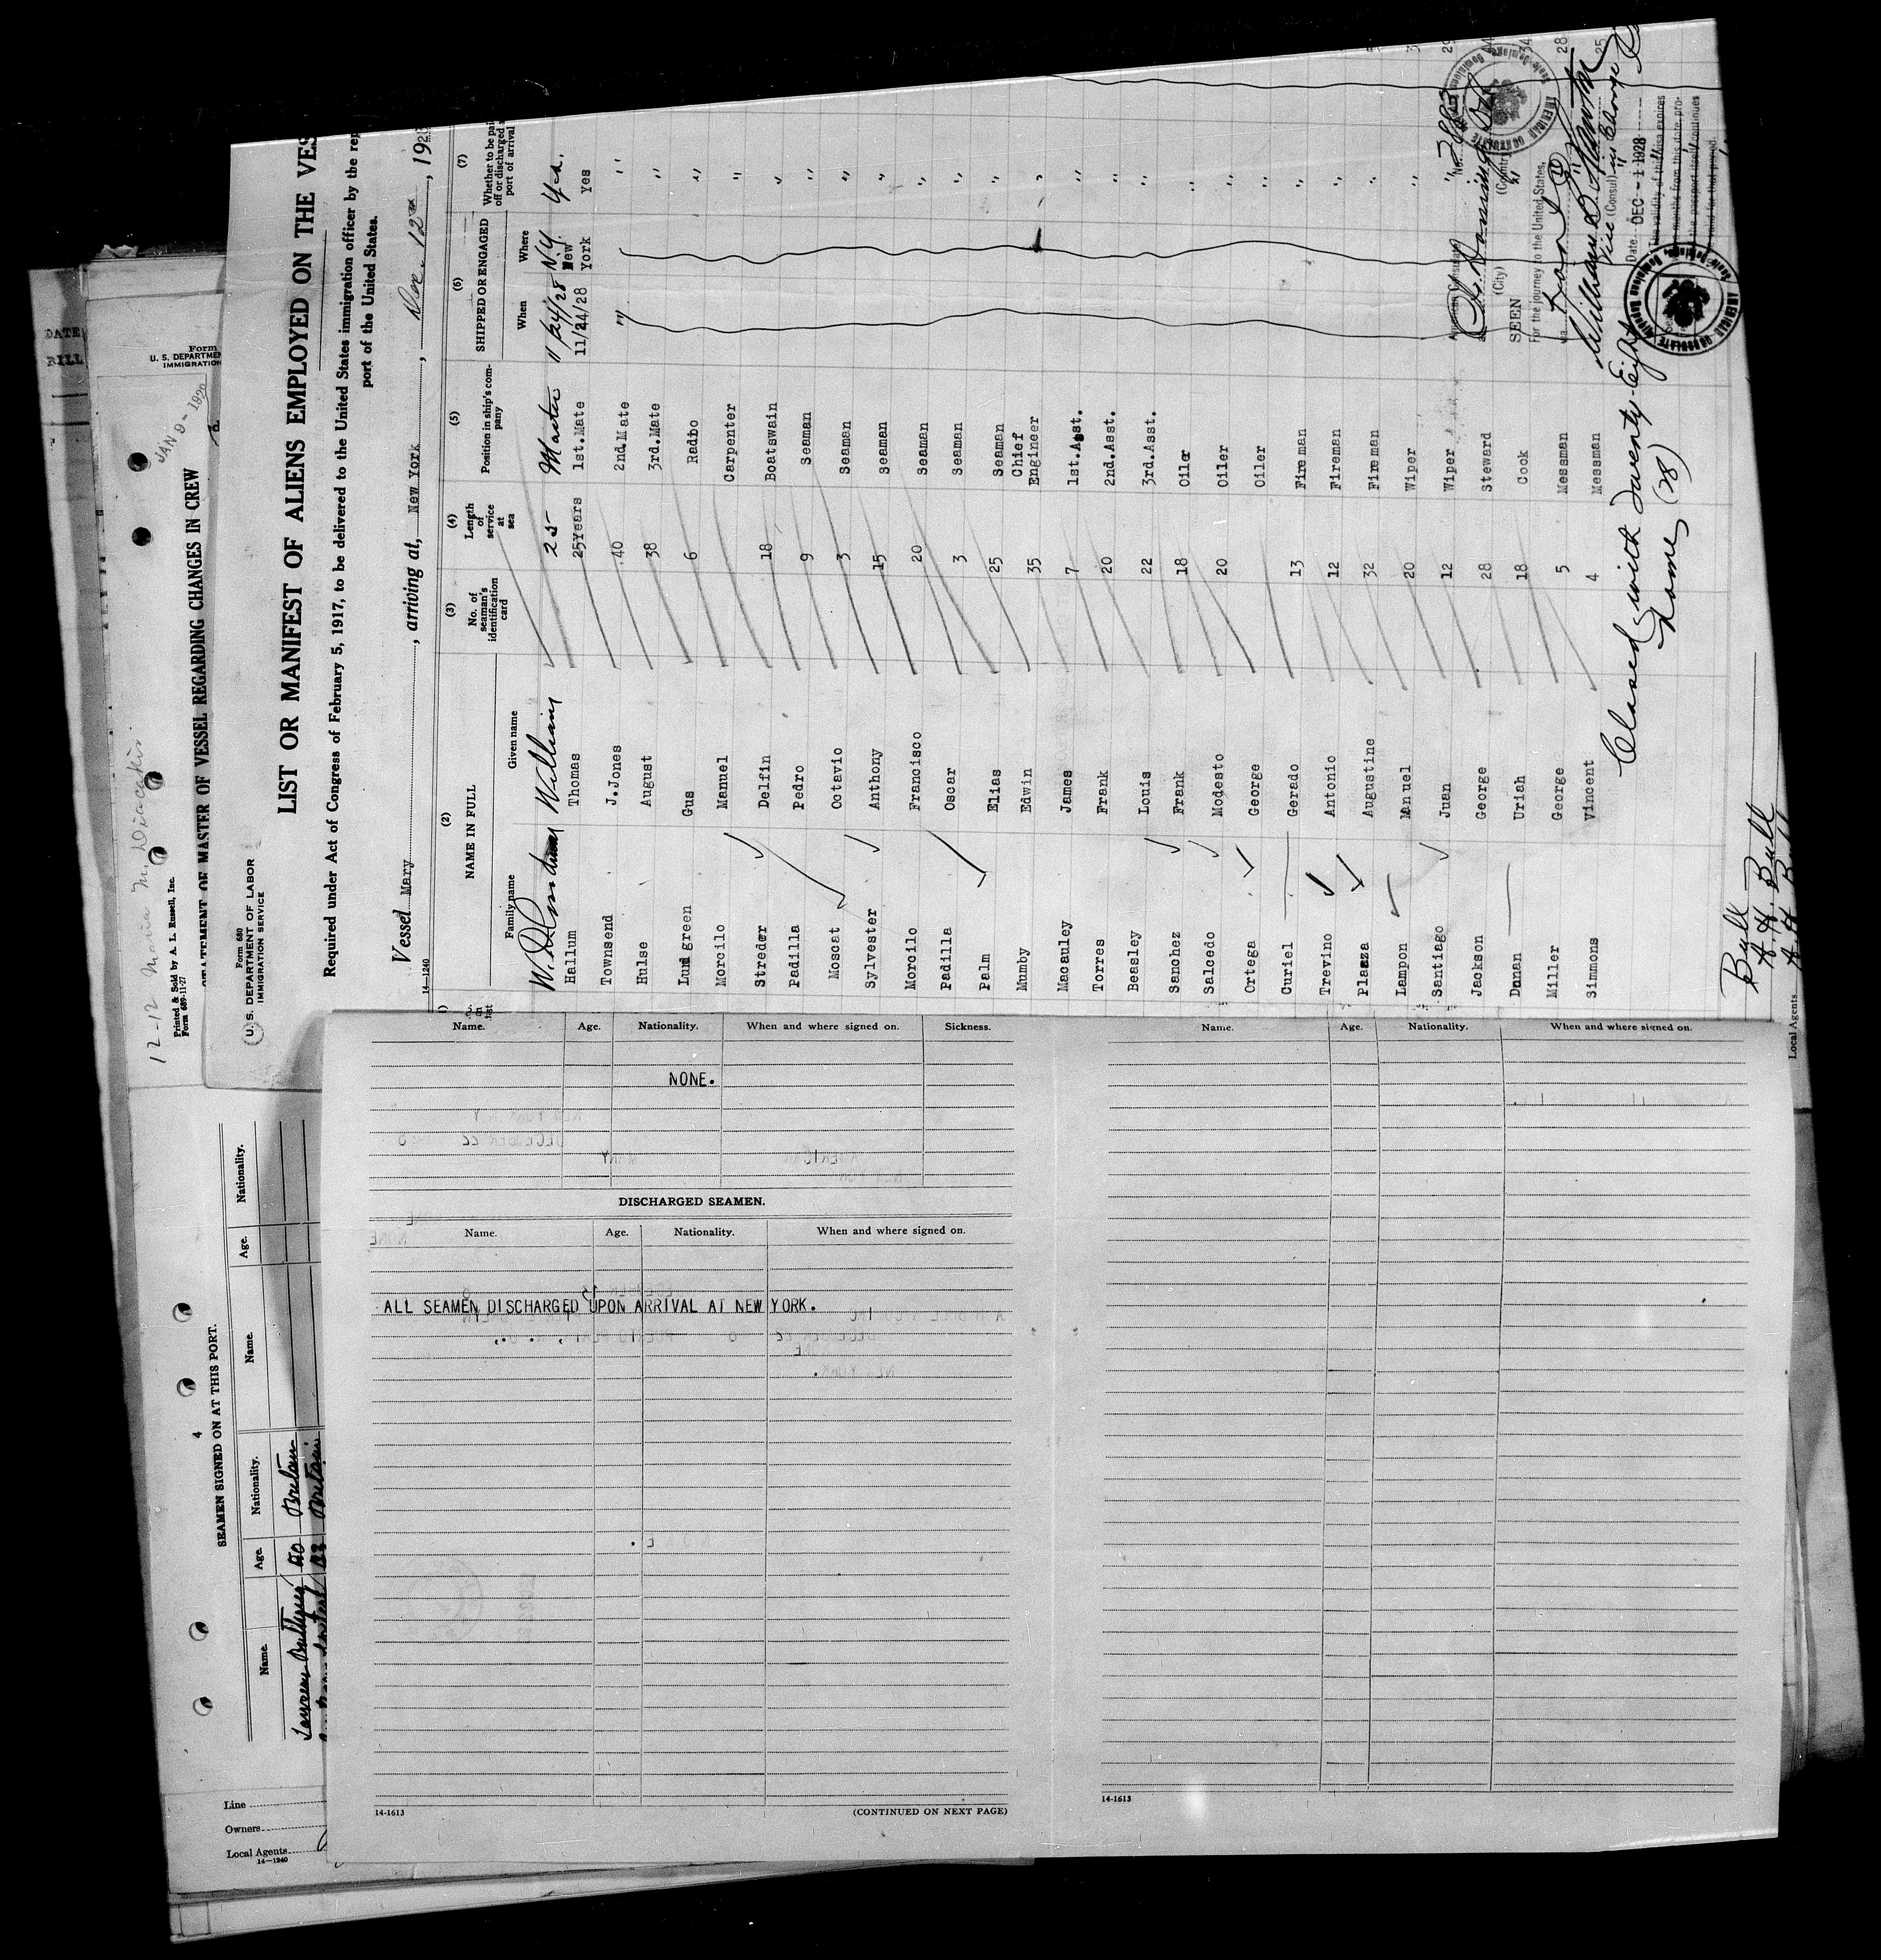 DATE
BILL
Form
U. S. DEPARTMEN
IMMIGRATION
JAN 9 - 1929
12-12 Maria M. Diacakis
Printed & Sold by A. L. Russell, Inc.
Form 689-11-27
STATEMENT OF MASTER OF VESSEL REGARDING CHANGES IN CREW
Form 680
U. S. DEPARTMENT OF LABOR
IMMIGRATION SERVICE
LIST OR MANIFEST OF ALIENS EMPLOYED ON THE VES
Required under Act of Congress of February 5, 1917, to be delivered to the United States immigration officer by the rep
port of the United States.
Vessel Mary , arriving at, New York , Dec. 12th , 1928
14-1240
(2) (3) (4) (5) (6) (7)
NAME IN FULL No. of seaman's identification card Length of service at sea Position in ship's company SHIPPED OR ENGAGED Whether to be pai off or discharged a port of arrival
Family name Given name When Where
William 25 Master 11/24/28 N.Y. Yes.
Hallum Thomas 25Years 1st.Mate 11/24/28 New York Yes
Townsend J.Jones 40 2nd.Mate " "
Hulse August 38 3rd.Mate "
Lundgreen Gus 6 Radio "
Morcilo Manuel Carpenter "
Streder Delfin 18 Boatswain "
Padilla Pedro 9 Seaman "
Moscat Octavio 3 Seaman "
Sylvester Anthony 15 Seaman "
Morcilo Francisco 20 Seaman "
Padilla Oscar 3 Seaman "
Palm Elias 25 Seaman "
Mumby Edwin 35 Chief Engineer "
Macauley James 7 1st.Asst. "
Torres Frank 20 2nd.Asst. "
Beasley Louis 22 3rd.Asst. "
Sanchez Frank 18 Oiler "
Salcedo Modesto 20 Oiler "
Ortega George Oiler "
Curiel Gerado 13 Fireman "
Trevino Antonio 12 Fireman "
Plaza Augustine 32 Fireman "
Lampon Manuel 20 Wiper "
Santiago Juan 12 Wiper "
Jackson George 28 Steward
Dnnan Uriah 18 Cook
Miller George 5 Messman
Simmons Vincent 4 Messman
29
44
34
28
25
American Consulate
(City) (Country)
SEEN
For the journey to the United States,
Vice (Consul) in Charge
Date: DEC - 1 1928
The validity of this visa expires
months from this date, pro-
the passport itself continues
valid for that period.
AMERICAN CONSULATE
Santo Domingo, Dominican Republic
AMERICAN CONSULATE
Santo Domingo, Dominican Republic
Closed with Twenty-Eight
(28) Names
Bull
A. H. Bull
A. H. Bull
Local Agents
Name. Age. Nationality. When and where signed on. Sickness.
NONE.
DISCHARGED SEAMEN.
Name. Age. Nationality. When and where signed on.
ALL SEAMEN DISCHARGED UPON ARRIVAL AT NEW YORK.
14-1613 (CONTINUED ON NEXT PAGE)
Name. Age. Nationality. When and where signed on.
14-1613
4
SEAMEN SIGNED ON AT THIS PORT.
Name. Age. Nationality. Name. Age. Nationality.
20 Britain
23 Britain
Line
Owners
Local Agents
14-1240